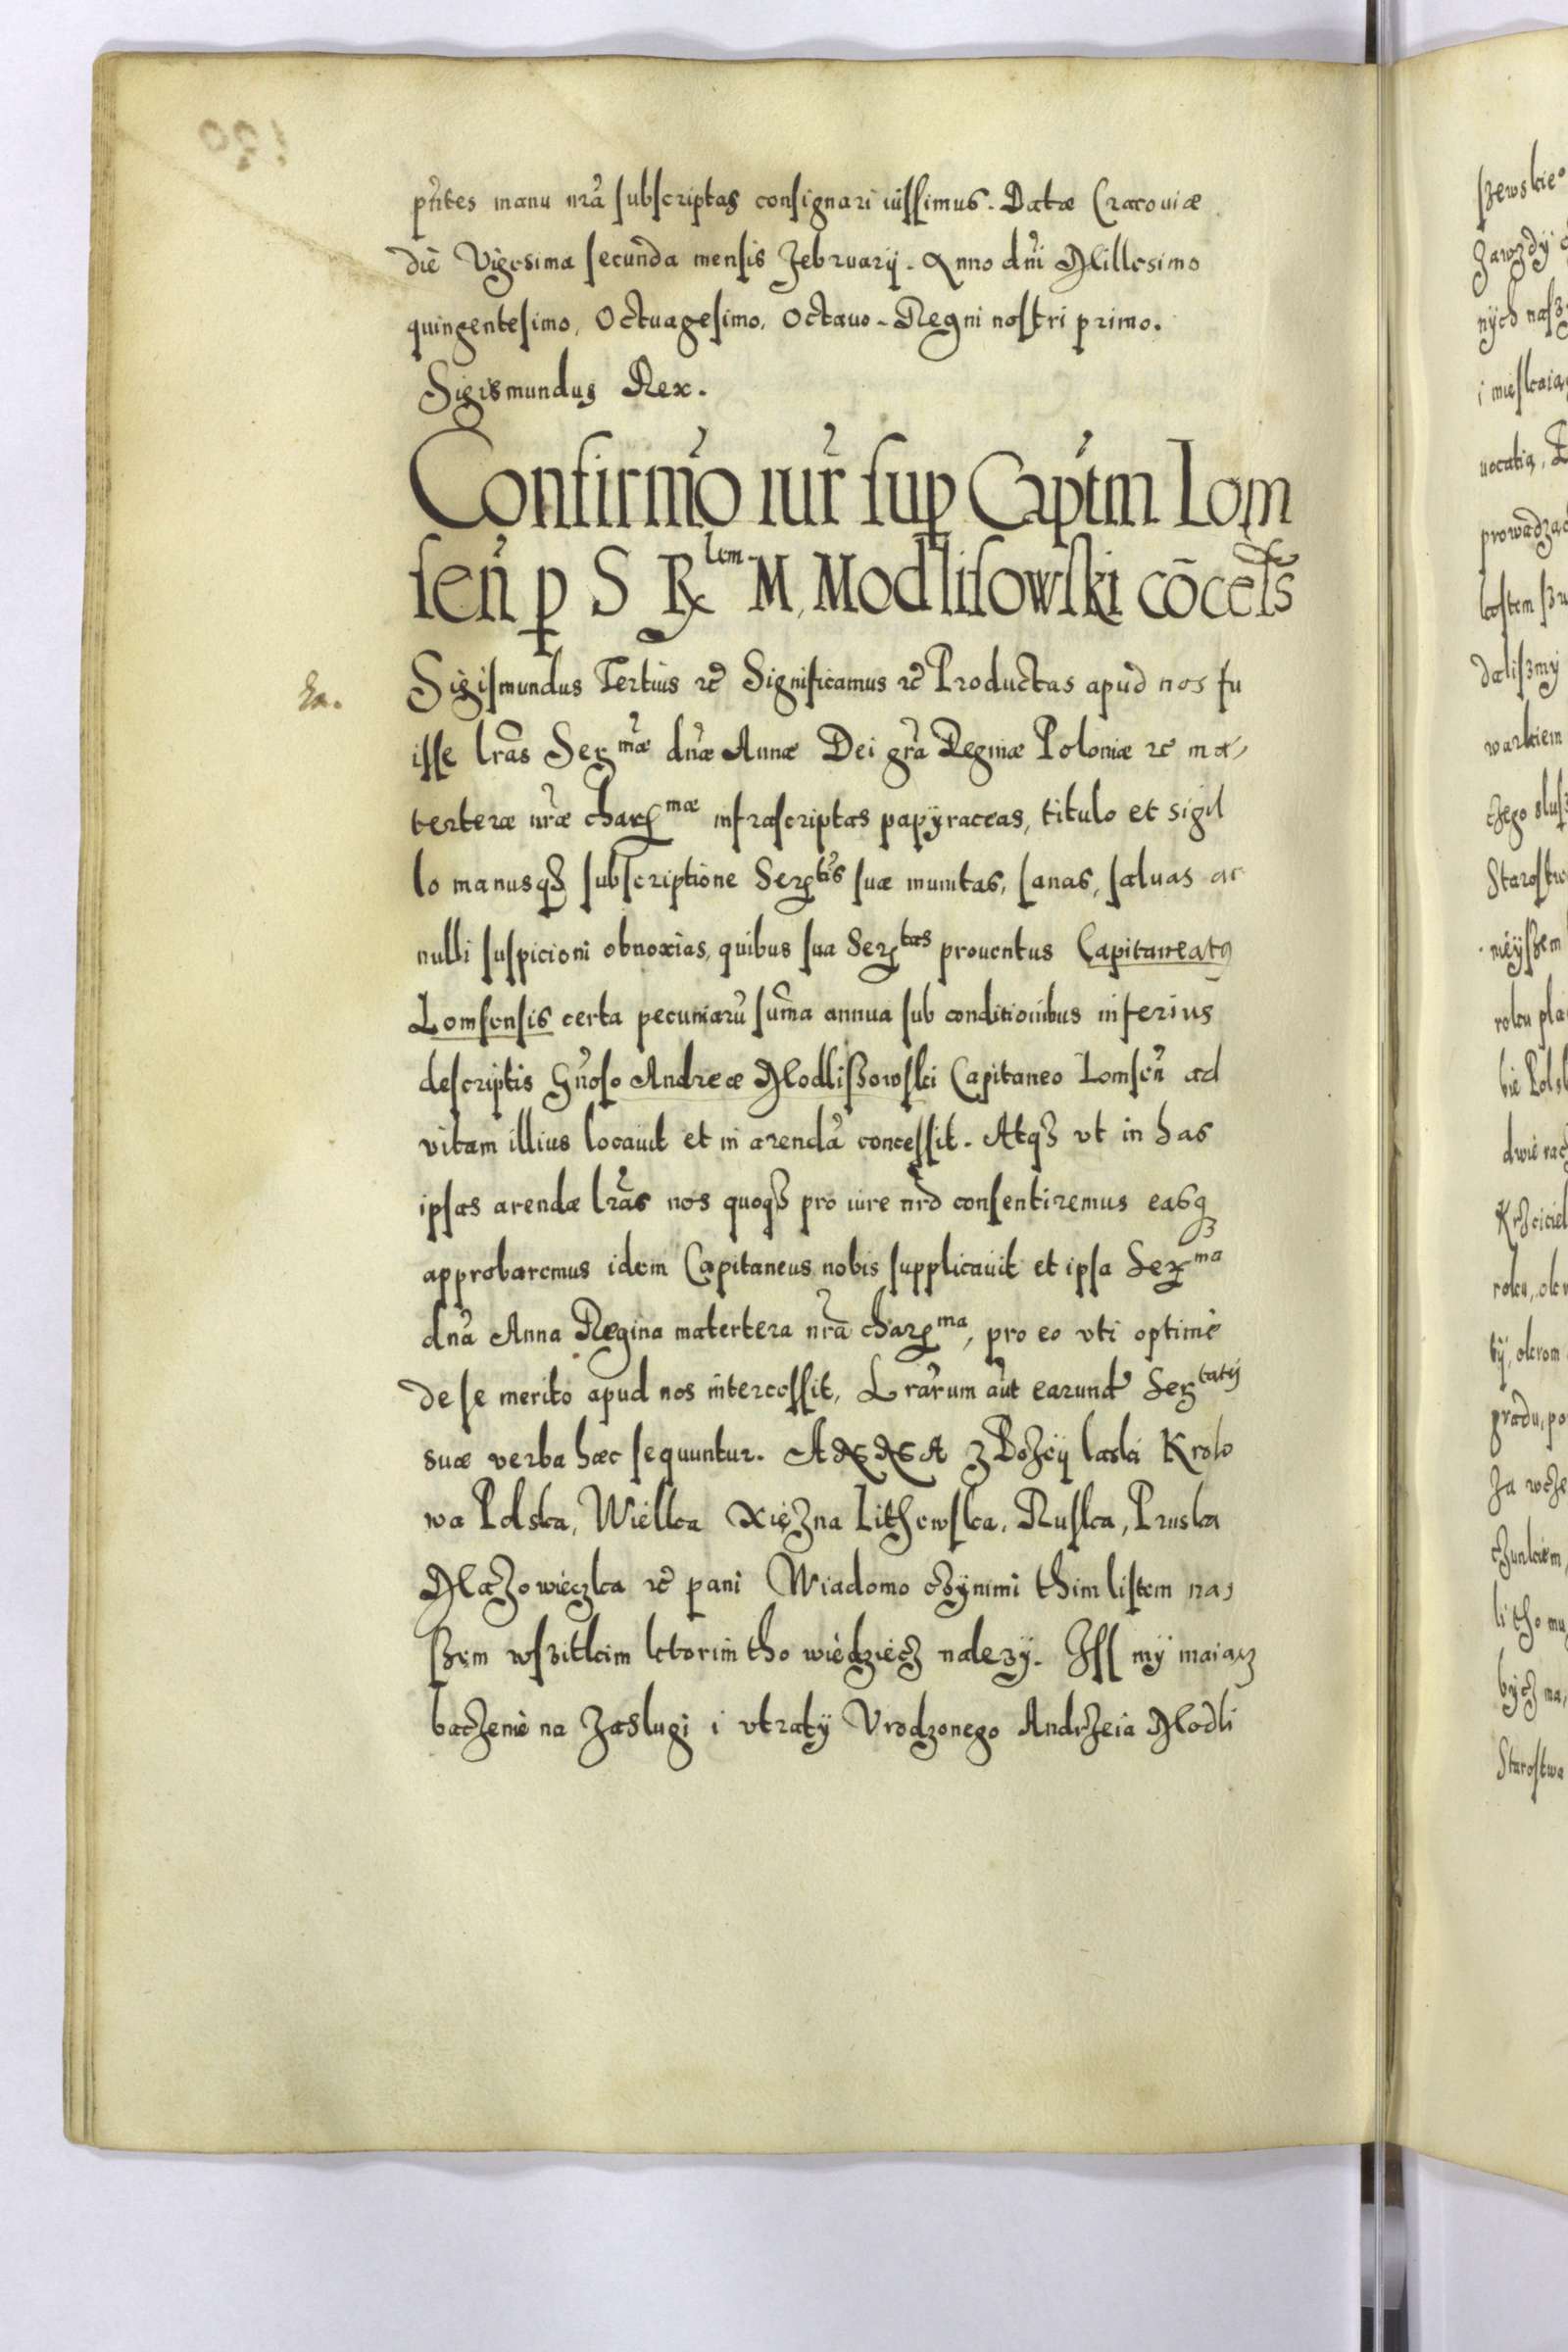 pñtes manu nrã subscriptas consignari iussimus. Datæ Cracouiæ
die Vigesima secunda mensis Februarij. Anno dñi Millesimo
quingentesimo, Octuagesimo, Octauo. Regni nostri primo.
Sigismundus Rex.
Confirmo iur sup Captm Lom
sen p S Rlem M, Modlisowski cōcess
Sigismundus Tertius etc Significamus etc Productas apud nos fu
isse lras Sermæ dnæ Annæ Dei gra Reginæ Poloniæ etc ma
terteræ nræ charmæ infrascriptas papyraceas, titulo et sigil
lo manusq3 subscriptione Sertis suæ munitas, sanas, saluas ac
nulli suspicioni obnoxias, quibus sua Sertas prouentus Capitaneatus
Lomsensis certa pecuniarũ sũma annua sub conditionibus inferius
descriptis Gnoso Andreæ Modliszowski Capitaneo Lomsen ad
vitam illius locauit et in arendã concessit. Atq3 vt in has
ipsas arendæ lras nos quoq3 pro iure nro consentiremus easq3
approbaremus idem Capitaneus nobis supplicauit et ipsa Serma
dna Anna Regina matertera nra charma, pro eo vti optimè
de se merito apud nos intercessit, Lrarum aut earund Sertatis
suæ verba hæc sequuntur. ANNA z Bożey laski Krolo
wa Polska, Wielka Xiężna Lithewska, Ruska, Pruska
Mazowieczka etc pani Wiadomo czynimi thim listem na
szem wszitkim ktorim tho wiedziecz nalezy. Iss my maiącz
baczenie na zaslugi i vtraty Vrodzonego Andrzeia Modli